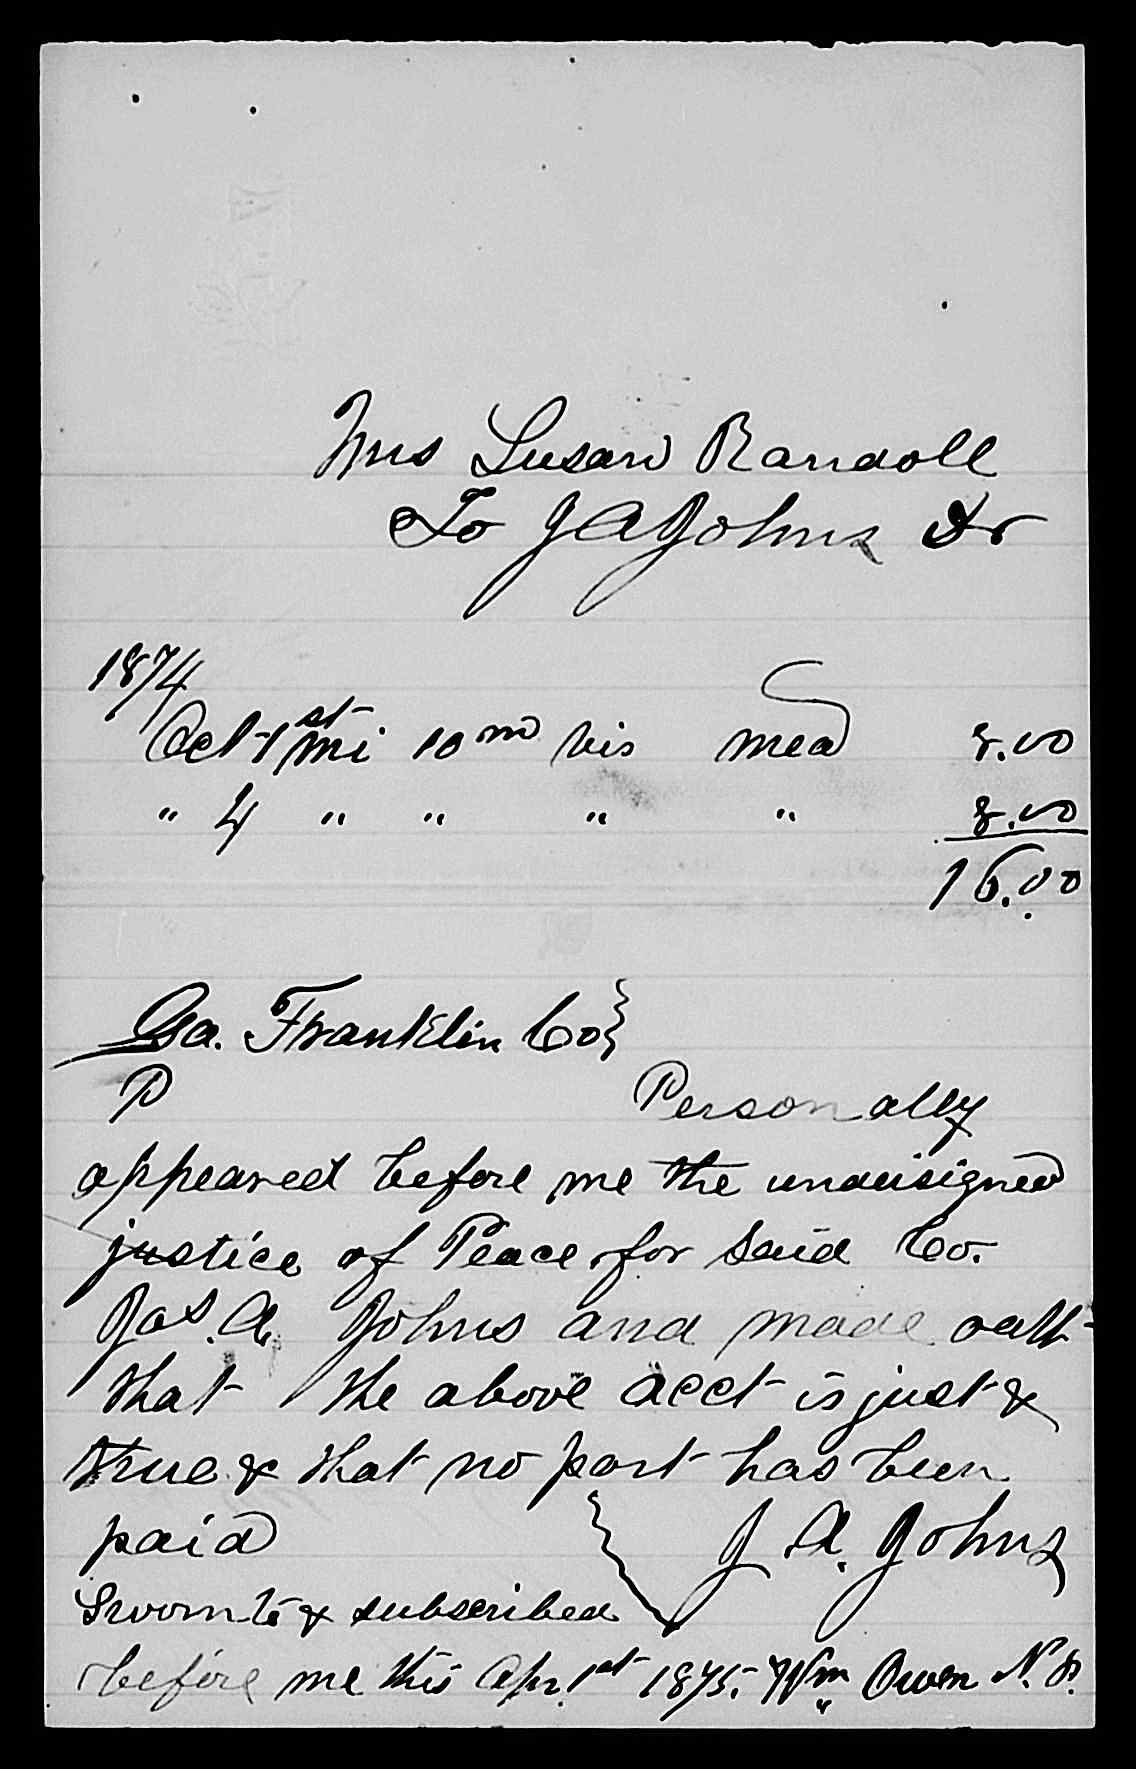 Mrs Susan Randoll
To J A Johns Dr
1874
Oct 1st mi 10 m vis med 8.00
" 4 " " " " 8.00
16.00
Ga. Franklin Co}
P Personally
appeared before me the undersigned
justice of Peace for said Co.
Jas. A. Johns and made oath
that the above acct is just &
true & that no part has been
paid } J. A. Johns
Sworn to & subscribed
before me this Apr. 1st 1875. Wm Owen N.P.